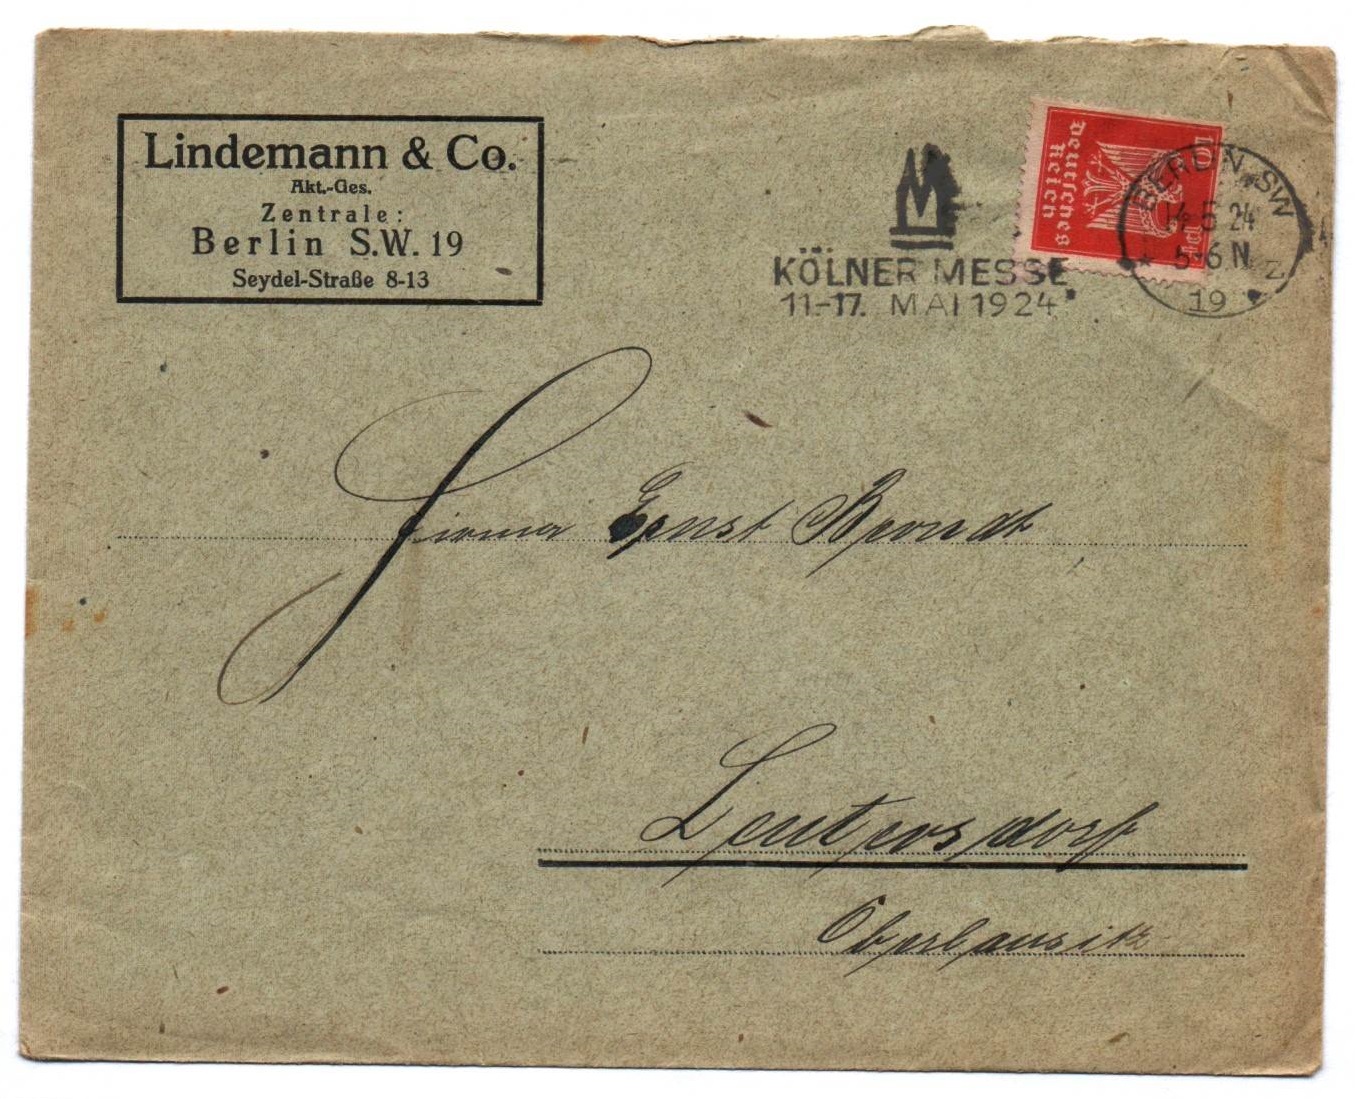 Lindemann & Co.
Akt.-Ges.
Zentrale:
Berlin S.W. 19
Seydel-Straße 8-13
M
KÖLNER MESSE
11.-17. MAI 1924
Deutsches
Reich
10
BERLIN SW
14.5.24
5-6 N
19
Firma Ernst Berndt
Leutersdorf
Oberlausitz